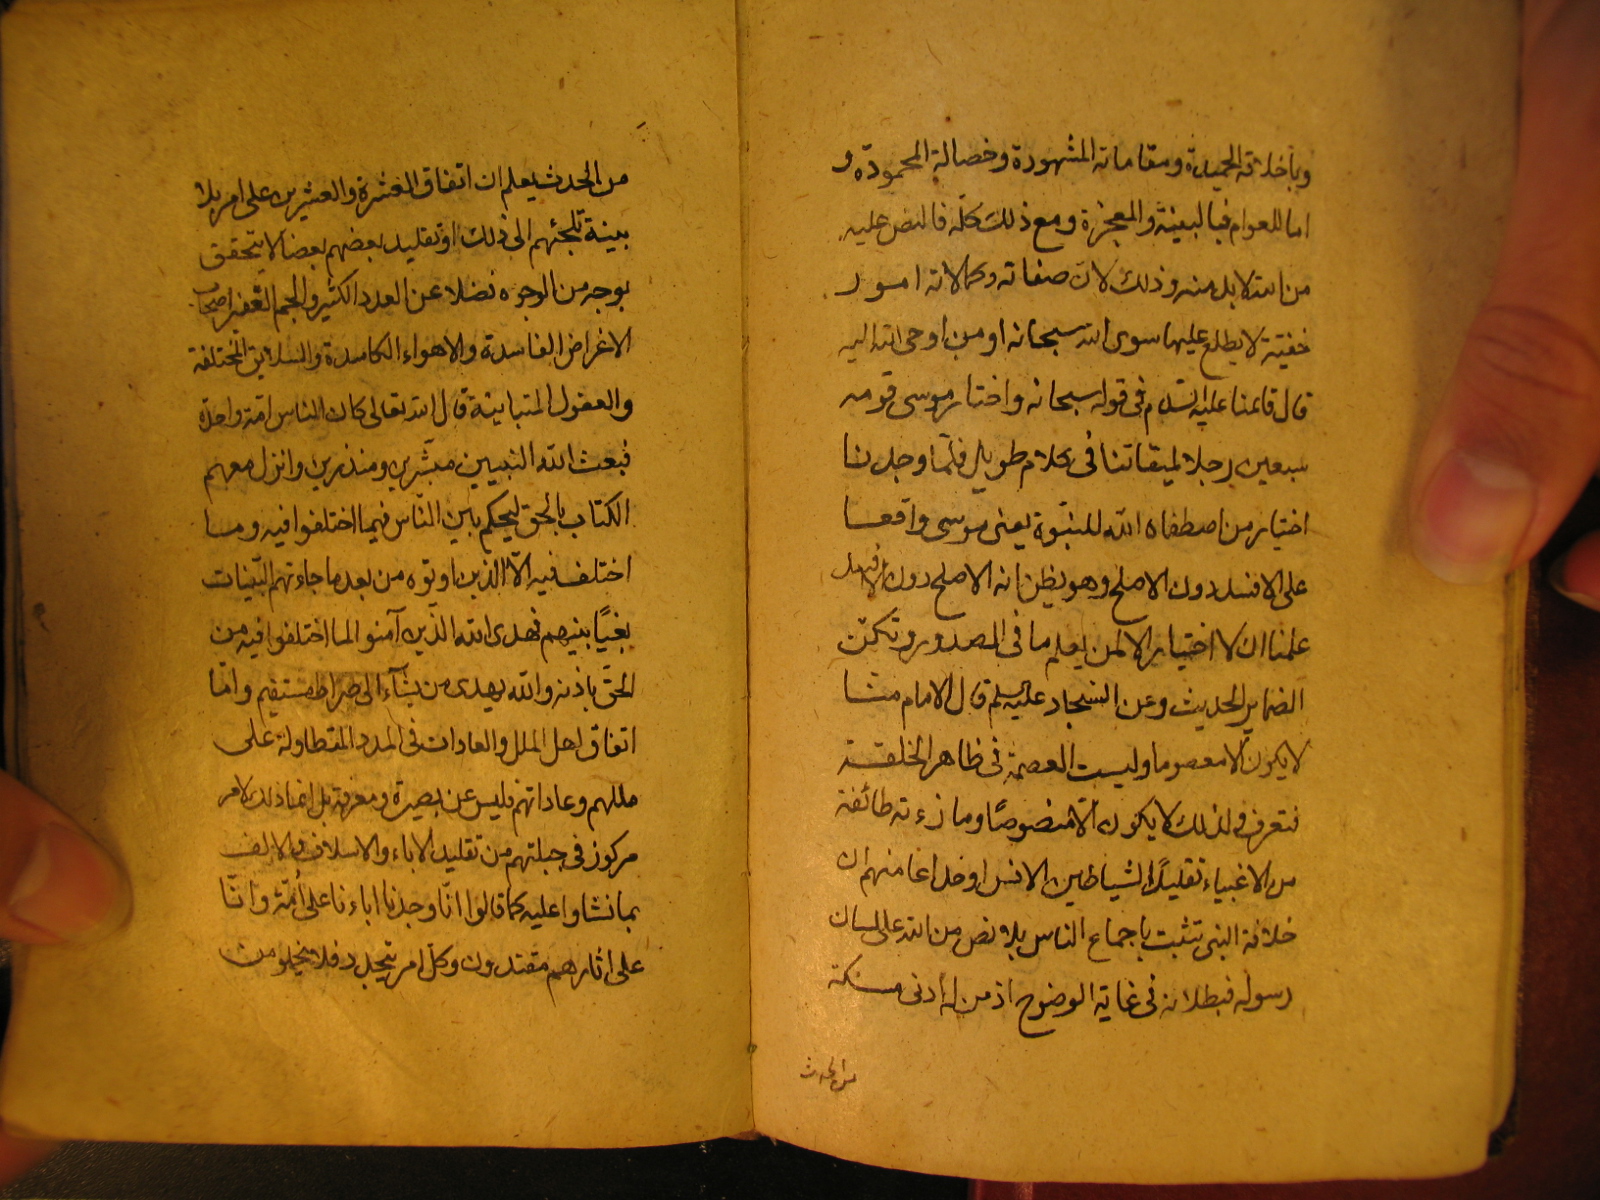 وبأخلاقه الحميدة ومقاماته المشهودة وخصاله المحمودة و
اما للعوام فبالبينة والمعجزة ومع ذلك كلّه فالنص عليه
من الله لابد منه وذلك لان صفاته وكمالاته امور
خفيّة لا يطلع عليها سوى الله سبحانه او من اوحى الله اليه
قال قائمنا عليه السلام في قوله سبحانه واختار موسى قومه
سبعين رجلا لميقاتنا في كلام طويل فلمّا وجدنا
اختيار من اصطفاه الله للنبّوة يعني موسى واقعا
على الافسد دون الاصلح وهو يظن انه الاصلح دون الافسد
علمنا ان لا اختيار الا لمن يعلم ما في الصدور وتكنّ
الضماير الحديث وعن السجاد عليه السلم قال الامام منّا
لا يكون الا معصوما وليست العصمة في ظاهر الخلقة
فتعرف ولذلك لا يكون الّا منصوصًا وما زعمته طائفة
من الاغبياء تقليدًا لشياطين الانس او خداعا منهم ان
خلافة النبي تثبت باجماع الناس بلا نص من الله على لسان
رسوله فبطلانه في غاية الوضوح اذ من له أدنى مسكة
من الحدث
من الحدث يعلم ان اتفاق العشرة والعشرين على امر بلا
بينة تلجئهم الى ذلك او تقليد بعضهم بعضا لا يتحقق
بوجه من الوجوه فضلا عن العدد الكثير والجم الغفير اصحاب
الاغراض الفاسدة والاهواء الكاسدة والسلائق المختلفة
والعقول المتباينة قال الله تعالى كان الناس امّة واحدة
فبعث الله النبيين مبشّرين ومنذرين وانزل معهم
الكتاب بالحق ليحكم بين النّاس فيما اختلفوا فيه وما
اختلف فيه الّا الذين اوتوه من بعد ما جاءتهم البّينات
بغيًا بينهم فهدى الله الذّين آمنوا لما اختلفوا فيه من
الحقّ باذنه والله يهدى من يشآء الى صراط مستقيم وامّا
اتفاق اهل الملل والعادات في المدد المتطاولة على
مللهم وعاداتهم فليس عن بصيرة ومعرفة بل انما ذلك لامر
مركوز في جبلتهم من تقليد الاباء والاسلاف والالف
بما نشاوا عليه كما قالوا انّا وجدنا اباءنا على أُمّة وانّا
على اثارهم مقتدون وكلّ امر يتجدد فلا يخلو من